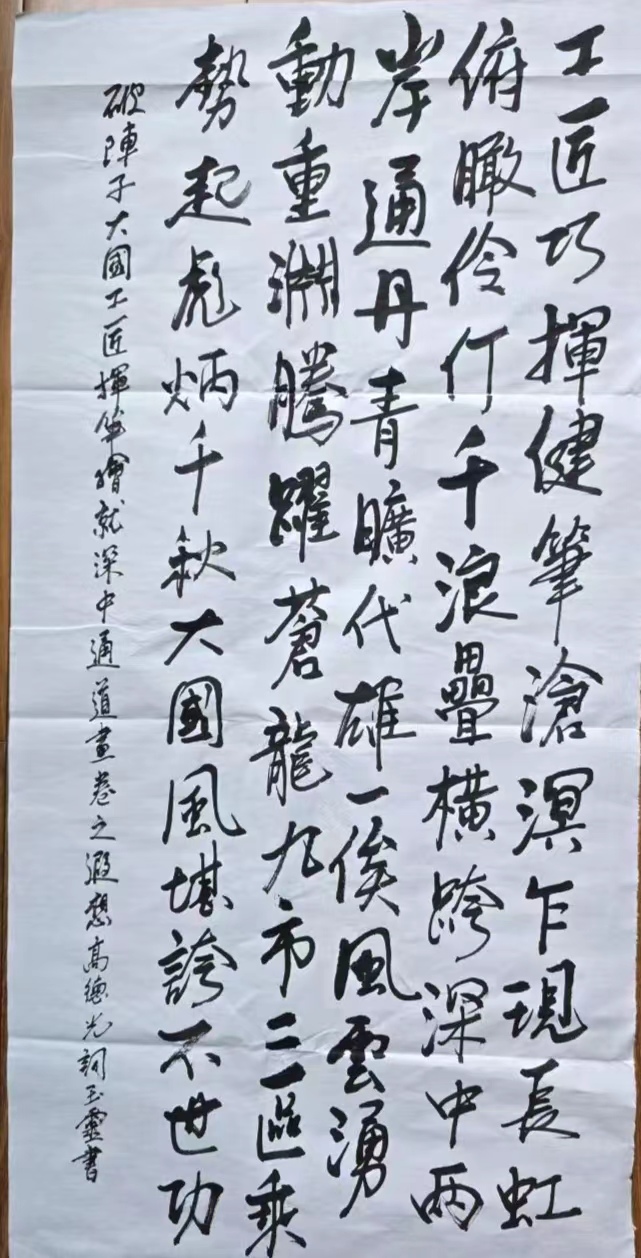 工匠巧揮健筆滄溟乍現長虹
俯瞰伶仃千浪疊橫跨深中兩
岸通丹青曠代雄一俟風雲湧
動重淵騰躍蒼龍九市二區乘
勢起彪炳千秋大國風堪誇不世功
破陣子大國工匠揮筆繪就深中通道畫卷之遐想高德光詞玉靈書